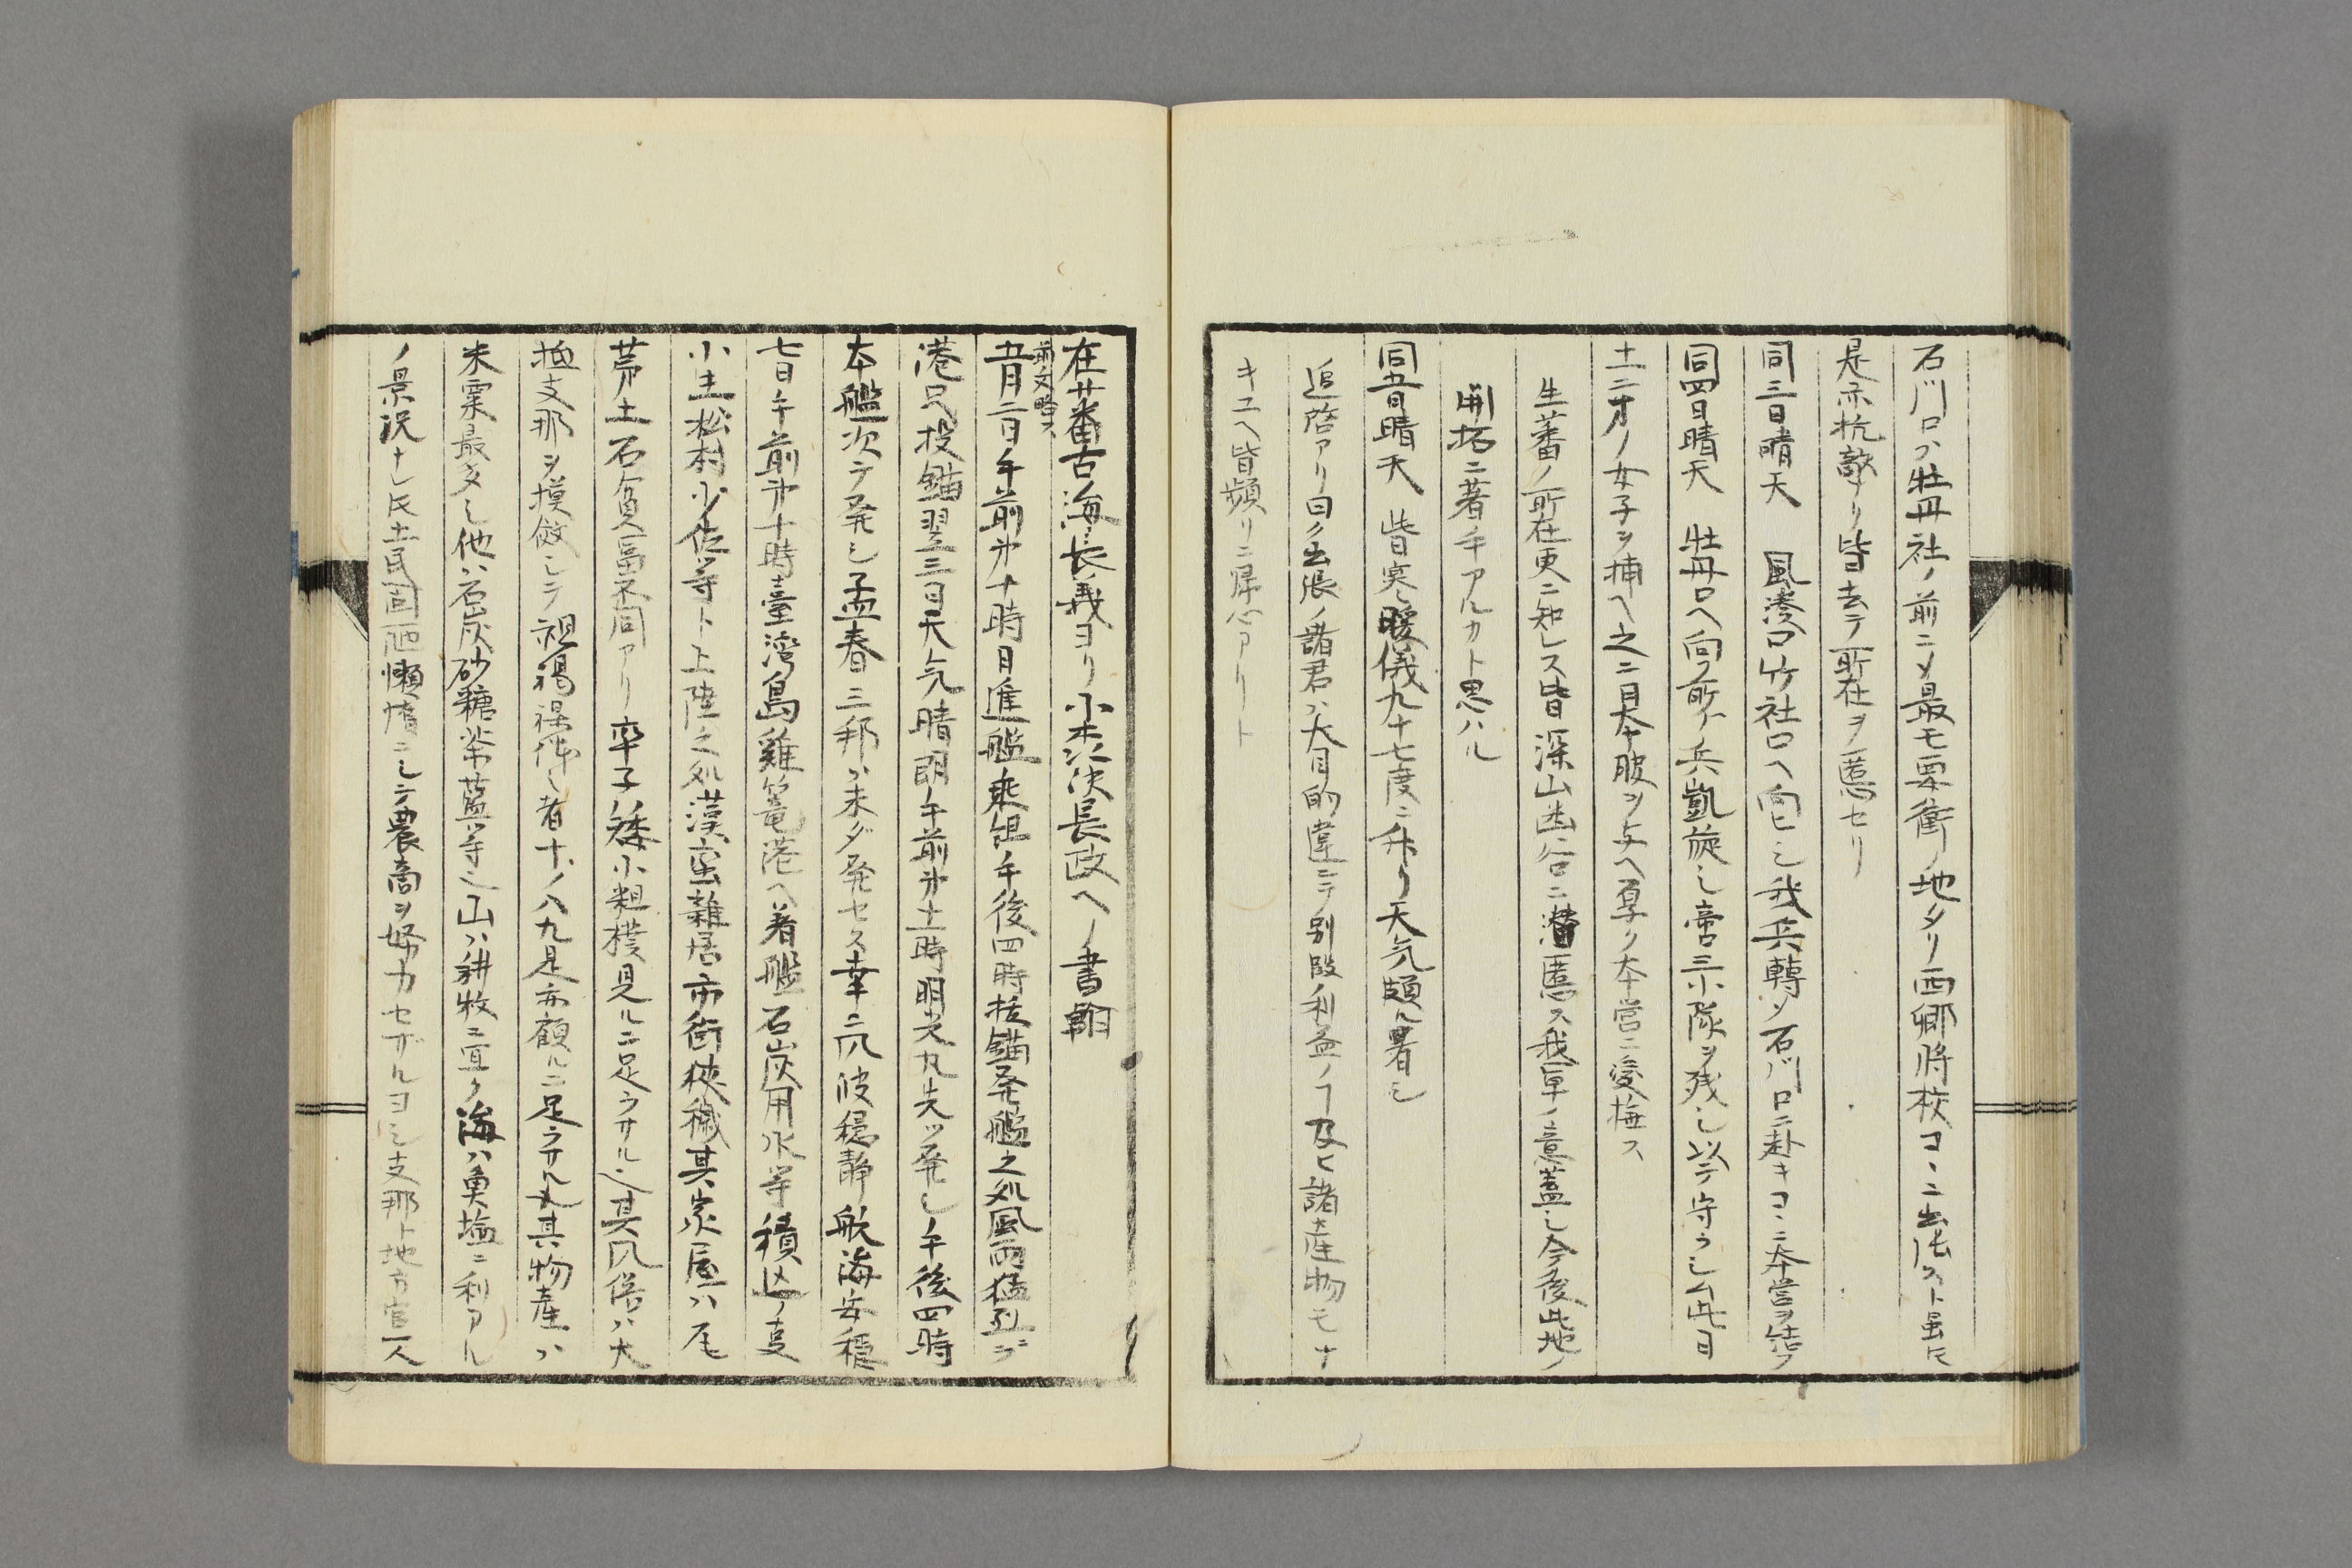 石川口ハ牡丹社ノ前ニメ最モ要衝ノ地タリ西郷将校コヽニ出張スト虽𪜈
是亦抗敵ナリ皆去テ所在ヲ匿セリ
同三日晴天 風港口竹社口ヘ向ヒシ我兵轉シ石川口ニ赴キコヽニ本営ヲ結フ
同四日晴天 牡丹口ヘ向フ所ノ兵凱旋シ啻三小隊ヲ残シ以テ守ラシム此日
十二才ノ女子ヲ捕ヘ之ニ日本服ヲ与ヘ厚ク本営ニ愛撫ス
生蕃ノ所在更ニ知レス皆深山幽谷ニ潜匿ス我軍ノ意蓋シ今後此地ノ
開拓ニ著手アルカト思ハル
同五日晴天 皆寒暖儀九十七度ニ升リ天気頗ル暑シ
追啓アリ曰ク出張ノ諸君ハ大目的違ヒテ別段利益ノヿ及ヒ諸産物モナ
キユヘ皆頻リニ帰心アリト
在廿番古海長義ヨリ小木次決長政ヘノ書翰
前文略ス
五月二日午前第十時日進艦乗組午後四時抜錨発艦之処風雨猛烈ニテ
港口ヘ投錨翌三日天気晴朗午前第十一時明光丸先ツ発シ午後四時
本艦次テ発シ孟春三邦ハ未ダ発セス幸ニ风波穏静航海安穏
七日午前第十時臺湾島雞篭港ヘ著艦石炭用水等積込ノ支
小生松村少佐等ト上陸之処漢蛮雑居市街狭穢其家屋ハ瓦
茅土石貧富不同アリ卒子矮小粗樸見ルニ足ラサル也其风俗ハ大
抵支那ヲ摸倣シテ祖褐裸体ノ者十ノ八九是亦顧ルニ足ラサル𪜈其物産ハ
米粟最多シ他ハ石炭砂糖茶藍等也山ハ耕牧ニ宜ク海ハ魚塩ニ利アル
ノ景况ナレ𪜈土民固陋懶惰ニシテ農商ヲ努力セザルヨシ支那ト地方官人